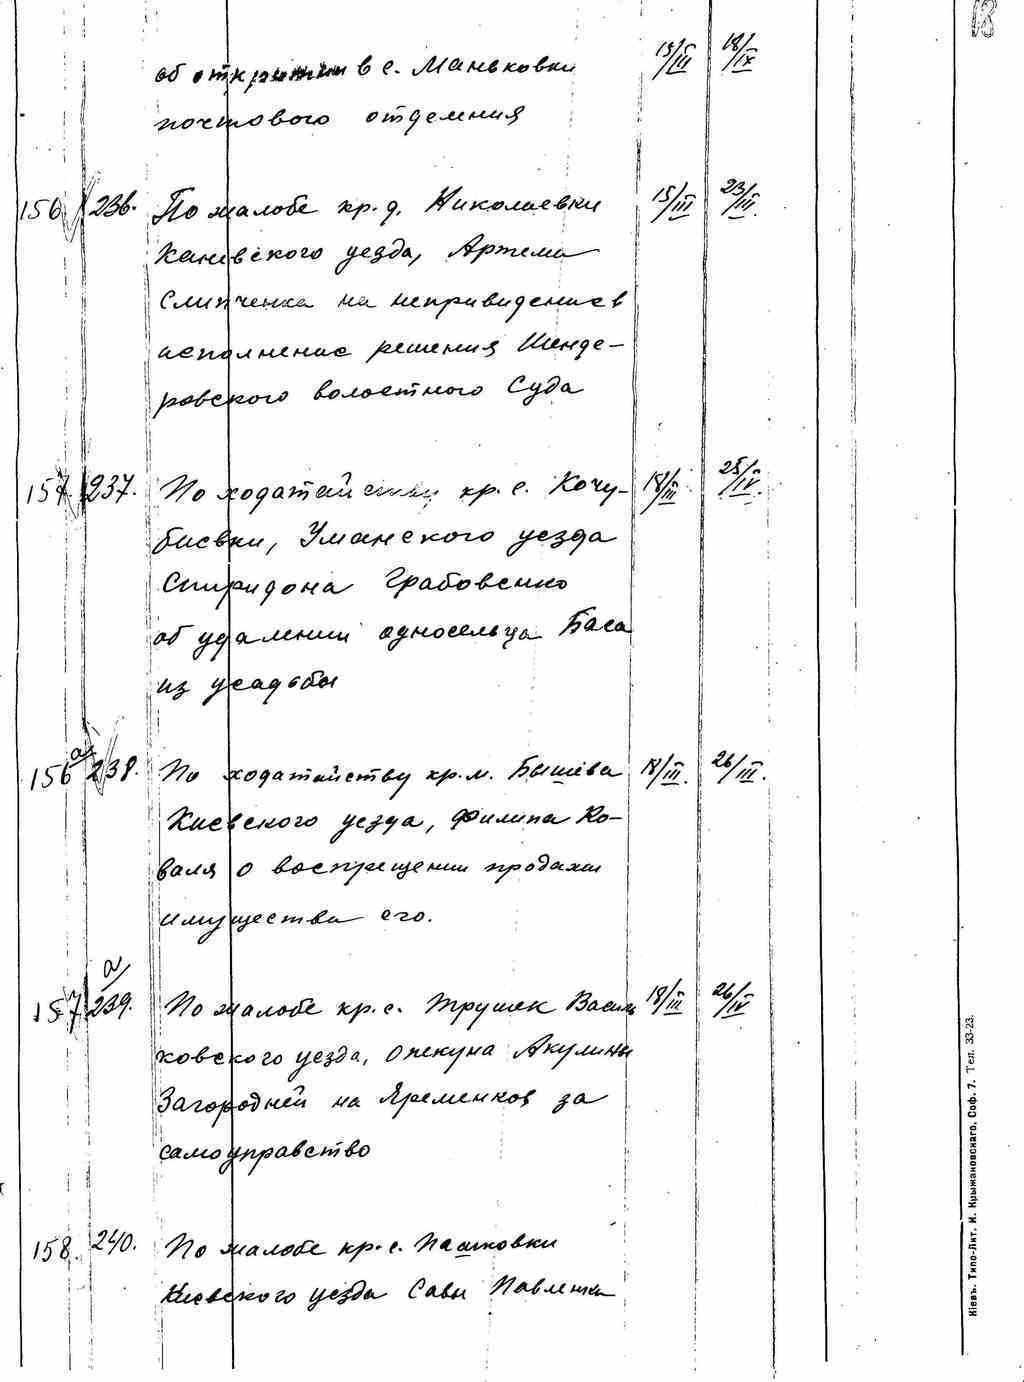 18
об открытии в с. Маньковки 15/III 18/IX
почтового отделения
156 236. По жалобе кр. д. Николаевки 15/III 23/III.
Каневского уезда, Артема
Слипченка на неприведение в
исполнение решения Шенде-
ровского волостного Суда
157 237. По ходатайству кр. с. Кочу- 18/III 25/IV.
биевки, Уманского уезда
Спиридона Грабовенко
об удалении односельца Баса
из усадьбы
156а 238. По ходатайству кр. м. Бышева 18/III. 26/III.
Киевского уезда, Филипа Ко-
валя о воспрещении продажи
имущества его.
157а 239. По жалобе кр. с. Трушек Василь 18/III 26/IV
ковского уезда, опекуна Акулины
Загородней на Яременков за
самоуправство
158. 240. По жалобе кр. с. Пашковки
Киевского уезда Савы Павленка
Кіевъ. Типо-Лит. И. Крыжановскаго, Соф. 7. Тел. 33-23.